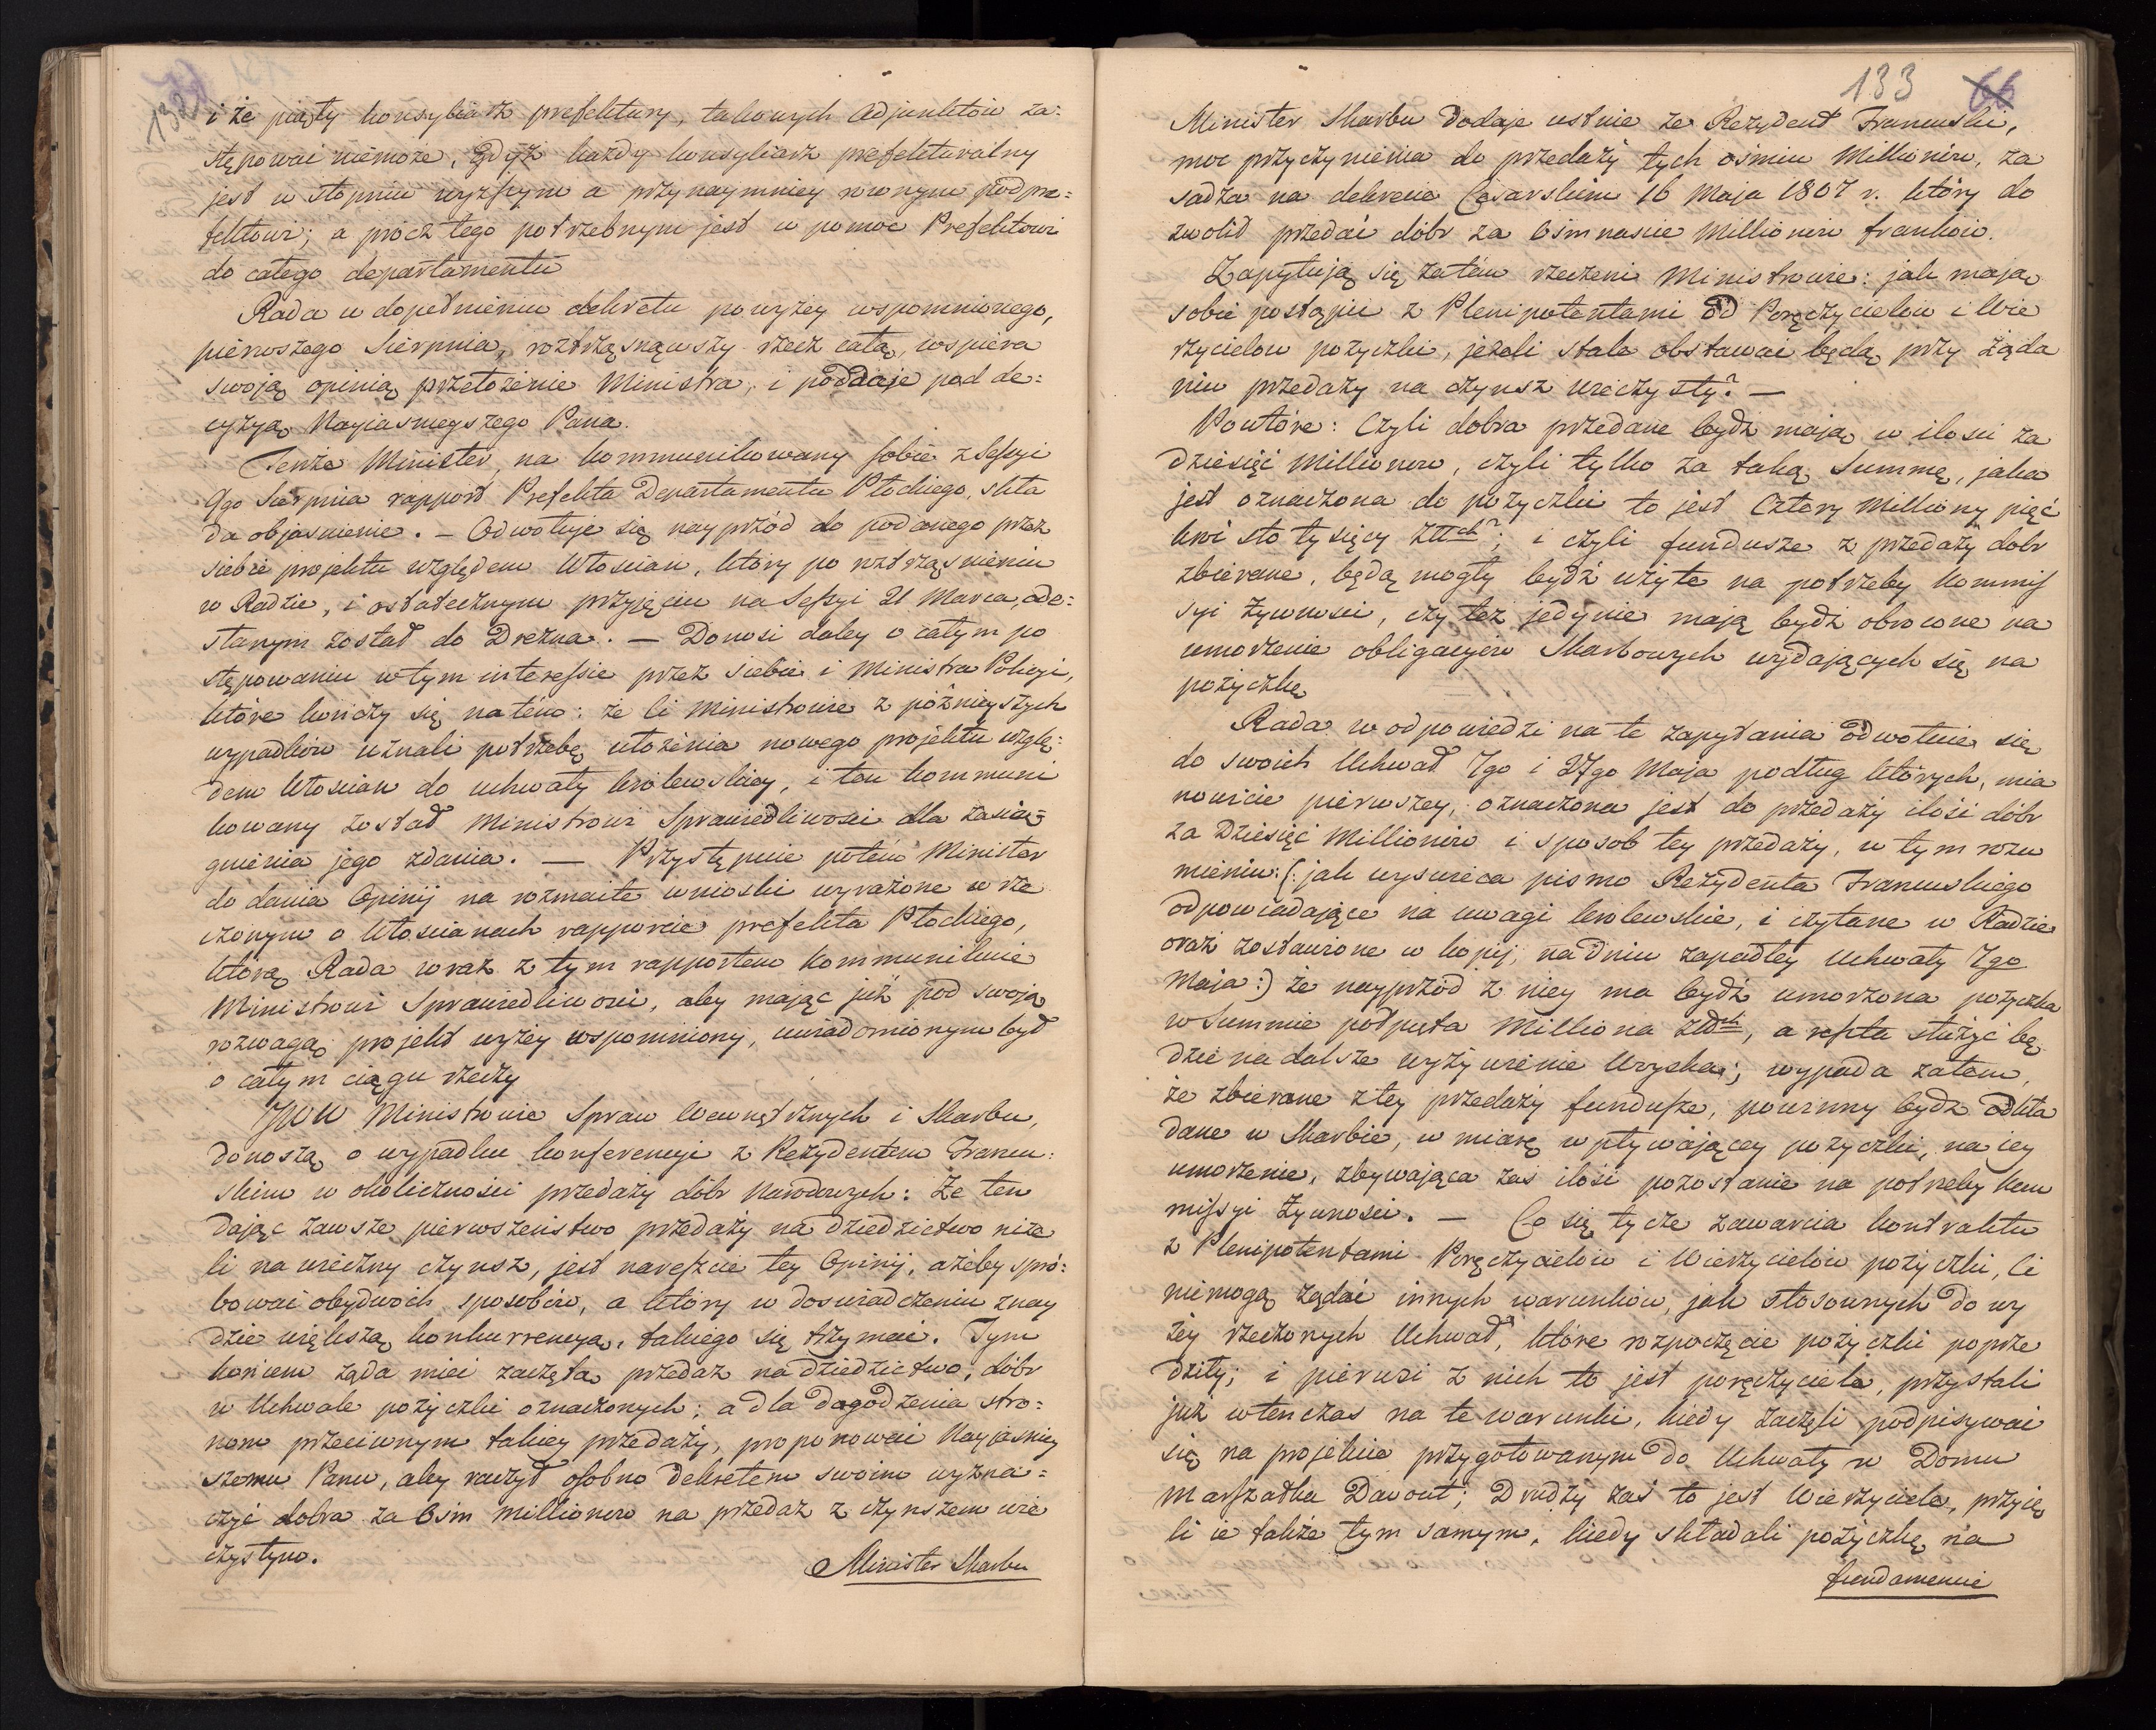 132
i że piąty konsyliarz prefektury, takowych Adjunktów za=
stępować niemoże, gdyż każdy konsyliarz prefekturalny
jest w stopniu wyższym a przynaymniey równym podpre=
fektowi; a prócz tego potrzebnym jest w pomoc Prefektowi
do całego departamentu
Rada w dopełnieniu dekretu powyżey wspomnionego,
pierwszego Sierpnia, roztrząsnąwszy rzecz całą, wspiera
swoją opinią przełożenie Ministra, i poddaje pod de=
cyzyą Nayiasnieyszego Pana.
Tenże Minister, na kommunikowany sobie z Sessyi
9go Sierpnia rapport Prefekta Departamentu Płockiego, skła
da objasnienie. – Odwołuje się nayprzód do podanego przez
siebie projektu względem Włościan, który po roztrząsnieniu
w Radzie, i ostatecznym przyjęciu na Sessyi 21 Marca, ode=
słanym został do Drezna. – Donosi daley o całym po
stępowaniu w tym interessie przez siebie i Ministra Policyi,
które kończy się na tém: że Ci Ministrowie z późnieyszych
wypadków uznali potrzebę ułożenia nowego projektu wzglę=
dem Włościan do uchwały królewskiey, i ten kommuni
kowany został Ministrowi Sprawiedliwości dla zasią=
gnienia jego zdania. — Przystępuie potém Minister
do dania Opinij na rozmaite wnioski wyrażone w rze
czonym o Włościanach rapporcie prefekta Płockiego,
którą Rada wraz z tym rapportem kommunikuie
Ministrowi Sprawiedliwości, aby mając już pod swoją
rozwagą projekt wyżey wspomniony, uwiadomionym był
o całym ciągu rzeczy
JWW Ministrowie Spraw Wewnętrznych i Skarbu,
donoszą o wypadku konferencyi z Rezydentem Francu=
skim w okoliczności przedaży dóbr Narodowych: Że ten
dając zawsze pierwszeństwo przedaży na dziedzictwo niże
li na wieczny czynsz, jest nareszcie tey Opinij, ażeby spró=
bować obydwóch sposobów, a który w doswiadczeniu znay
dzie większą konkurrencyą, takiego się trzymać. Tym
końcem żąda mieć zaczętą przedaż na dziedzictwo, dóbr
w Uchwale pożyczki oznaczonych; a dla dogodzenia stro=
nom przeciwnym takiey przedaży, proponować Nayjasniey
szemu Panu, aby raczył osobno dekretem swoim wyzna=
czyć dobra za Osm millionów na przedaż z czynszem wie
czystym.
Minister Skarbu
133 66
Minister Skarbu dodaje ustnie że Rezydent Francuski,
moc przyczynienia do przedaży tych osmiu Millionów, za
sadza na dekrecie Cesarskim 16 Maja 1807 r. który do
zwolił przedać dóbr za Osmnascie Millionów franków.
Zapytują się zatém rzeczeni Ministrowie: jak mają
sobie postąpić z Plenipotentami od Poręczycielów i Wie
rzycielów pożyczki, jeżeli stale obstawać będą przy żąda
niu przedaży na czynsz wieczysty? —
Powtóre: Czyli dobra przedane bydź mają w ilości za
dziesięć Millionów, czyli tylko za taką Summę, jaka
jest oznaczona do pożyczki to jest Cztery Milliony pięć
kroć sto tysięcy Złłch?; i czyli fundusze z przedaży dobr
zbierane, będą mogły bydź użyte na potrzeby Kommis
syi Żywności, czy też jedynie mają bydź obrocone na
umorzenie obligacyów Skarbowych wydających się na
pożyczkę
Rada w odpowiedzi na te zapytania odwołuie się
do swoich Uchwał 7go i 27go Maja podług których, mia
nowicie pierwszey, oznaczona jest do przedaży ilość dóbr
za Dziesięć Millionów i sposob tey przedaży, w tym rozu
mieniu: (: jak wyswieca pismo Rezydenta Francuskiego
odpowiadające na uwagi krolewskie, i czytane w Radzie
oraz zostawione w kopij, na dniu zapadłey Uchwały 7go
Maja :) że nayprzód z niey ma bydź umorzona pożyczka
w Summie półpięta Milliona Złłch, a reszta służyć bę
dzie na dalsze wyżywienie Woyska; wypada zatem,
że zbierane z tey przedaży fundusze, powinny bydz odkła
dane w Skarbie, w miarę wpływającey pożyczki, na iey
umorzenie, zbywająca zaś ilość pozostanie na potrzeby Kom
missyi Żywności. — Co się tycze zawarcia kontraktu
z Plenipotentami Poręczycielów i Wierzycielów pożyczki, Ci
niemogą żądać innych warunków, jak stosownych do wy
żey rzeczonych Uchwał, które rozpoczęcie pożyczki poprze
dziły; i pierwsi z nich to jest poręczyciele, przystali
już wtenczas na te warunki, kiedy zaczęli podpisywać
się na projekcie przygotowanym do Uchwały w Domu
Marszałka Davout; Drudzy zaś to jest Wierzyciele, przyię
li ie także tym samym, kiedy składali pożyczkę na
fundamencie